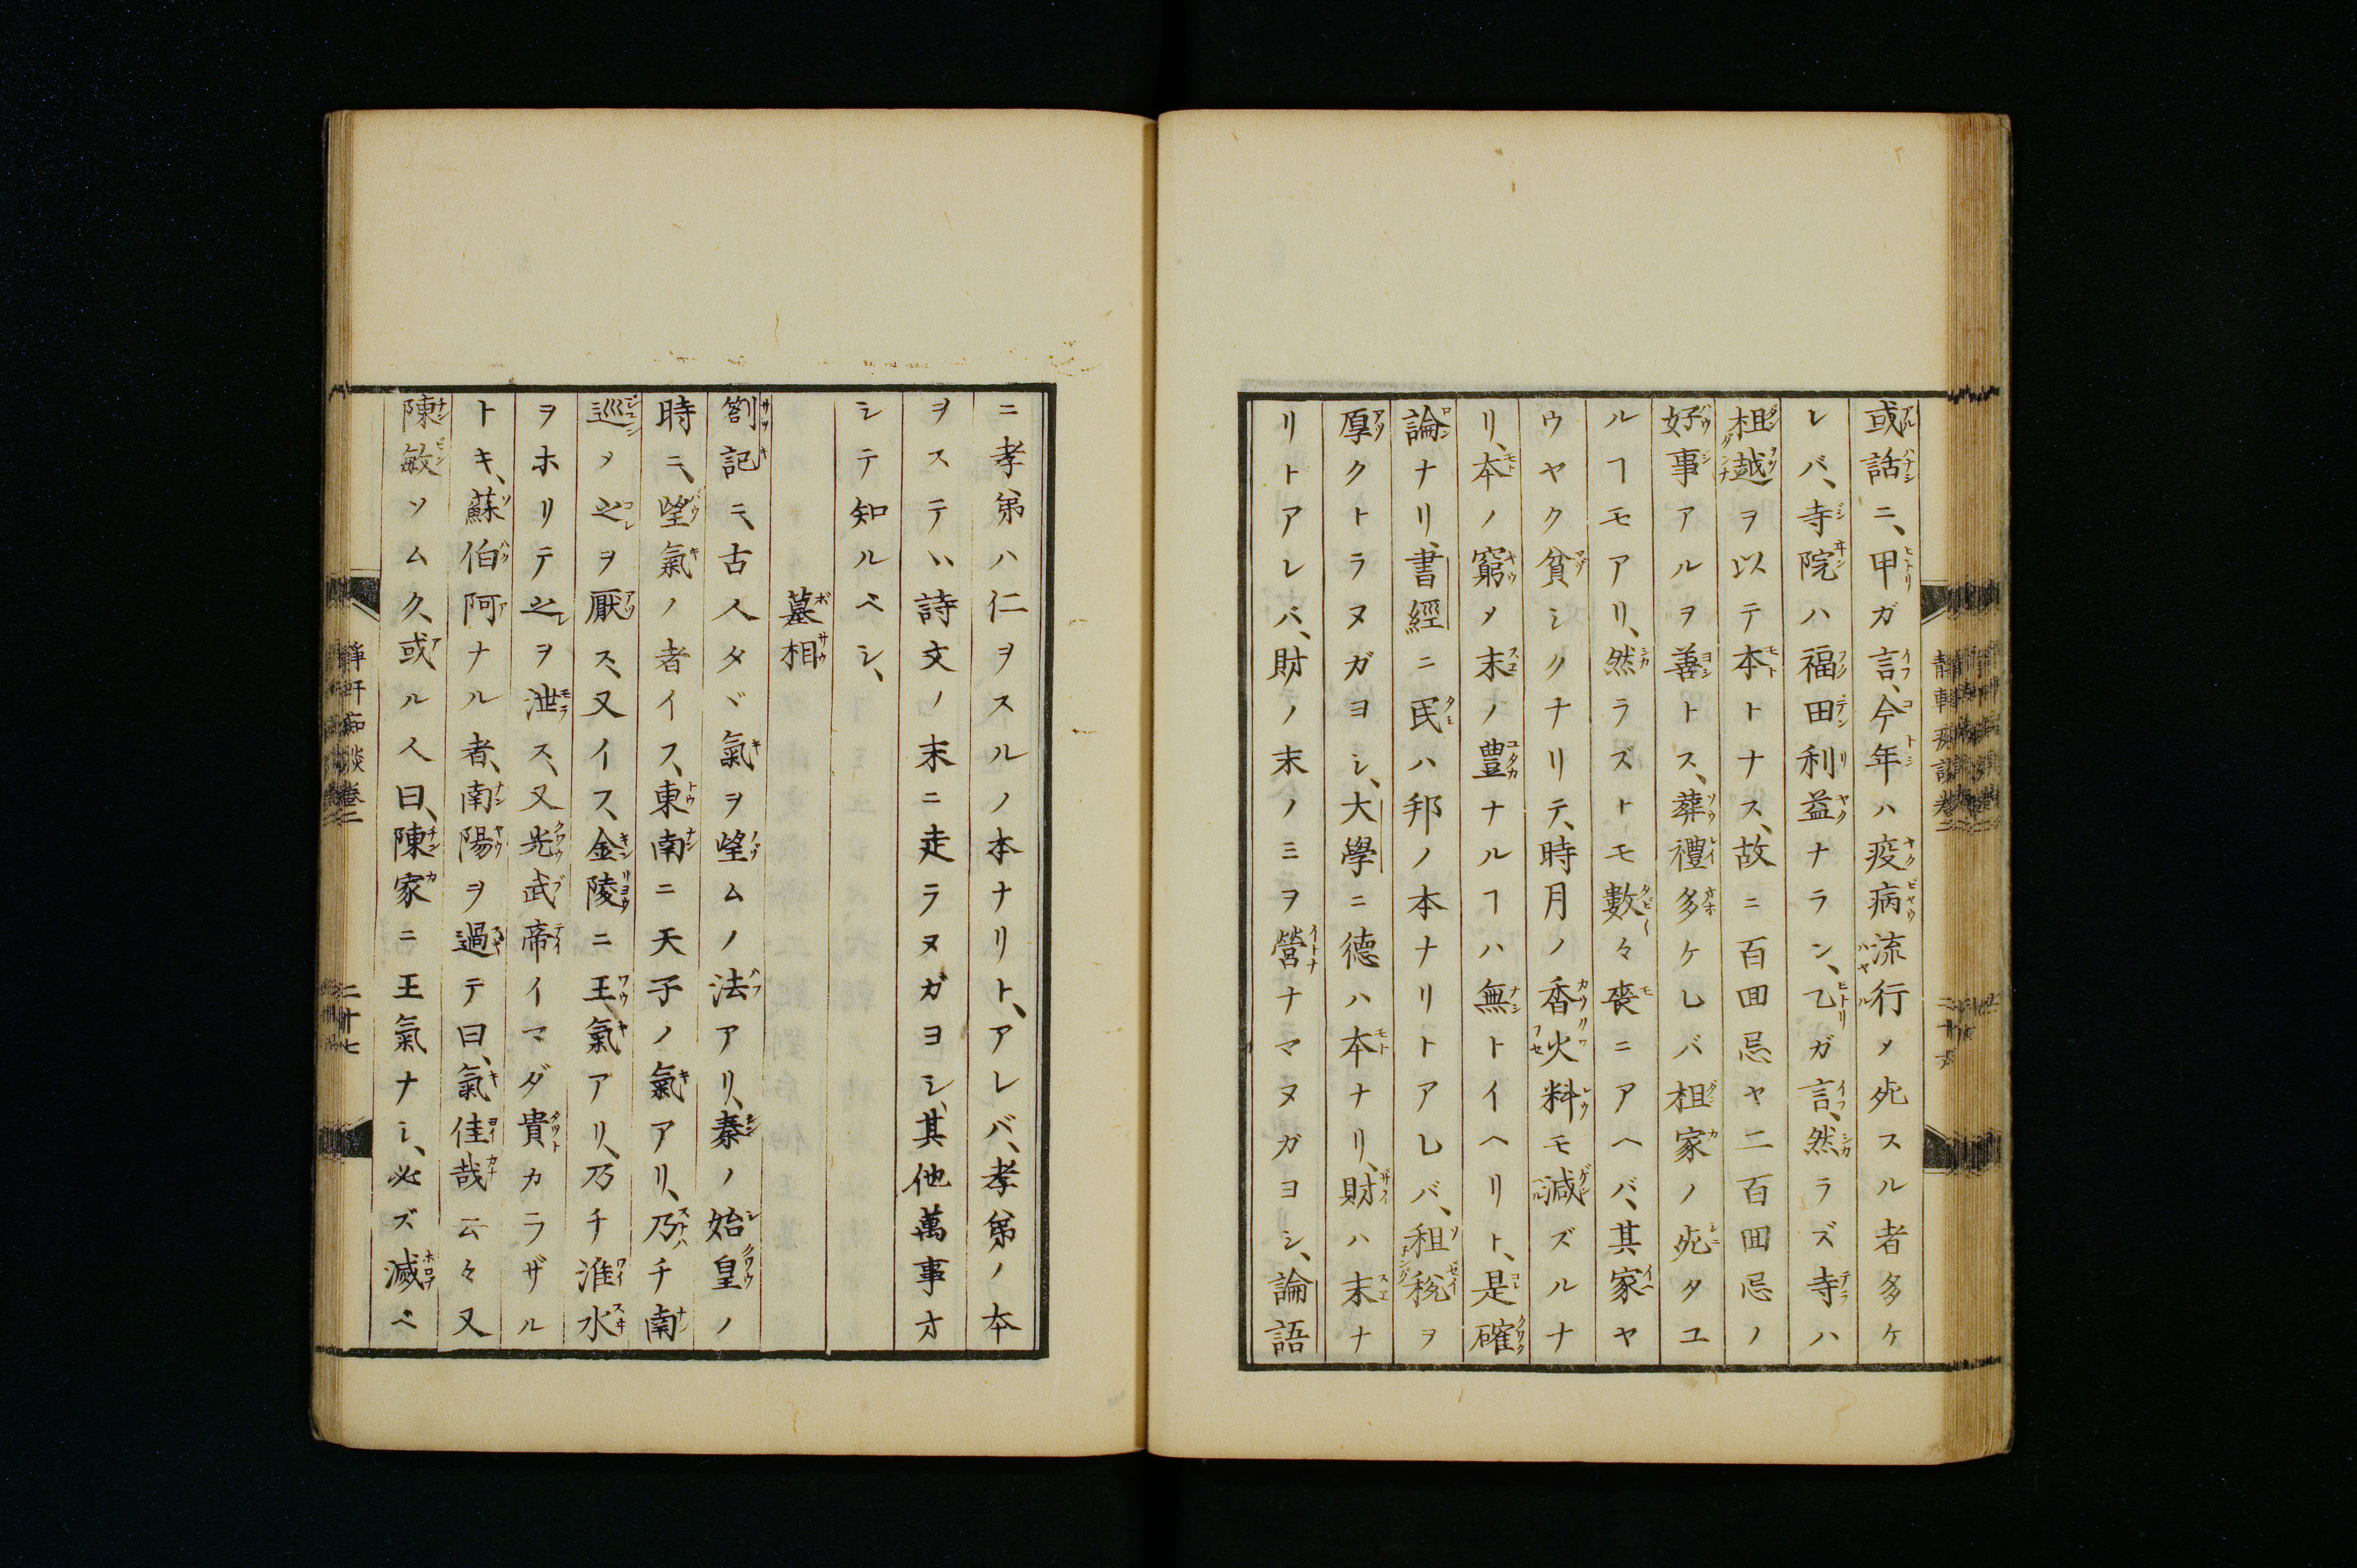 或話ニ、甲ガ言、今年ハ疫病流行メ死スル者多ケ
レバ、寺院ハ福田利益ナラン、乙ガ言、然ラズ寺ハ
柤越ヲ以テ本トナス、故ニ百回忌ヤ二百回忌ノ
好事アルヲ善トス、葬禮多ケレバ柤家ノ死タユ
ルヿモアリ、然ラズトモ數々喪ニアヘバ、其家ヤ
ウヤク貧シクナリテ、時月ノ香火料モ減ズルナ
リ、本ノ窮メ末ノ豊ナルヿハ無トイヘリト、是確
論ナリ、書經ニ民ハ邦ノ本ナリトアレバ、租税ヲ
厚クトラヌガヨシ、大學ニ德ハ本ナリ、財ハ末ナ
リトアレバ、財ノ末ノミヲ營ナマヌガヨシ、論語
ニ孝弟ハ仁ヲスルノ本ナリト、アレバ、孝弟ノ本
ヲステヽ詩文ノ末ニ走ラヌガヨシ、其他萬事オ
シテ知ルベシ、
墓相
劄記ニ、古人タヾ氣ヲ望ムノ法アリ、秦ノ始皇ノ
時ニ、望氣ノ者イス、東南ニ天子ノ氣アリ、乃チ南
巡メ之ヲ厭ス、又イス、金陵ニ王氣アリ、乃チ淮水
ヲホリテ之ヲ泄ス、又光武帝イマダ貴カラザル
トキ、蘇伯阿ナル者、南陽ヲ過テ曰、氣佳哉云々又
陳敏ソムク、或ル人曰、陳家ニ王氣ナシ、必ズ滅ベ
靜軒痴談卷二
二十七